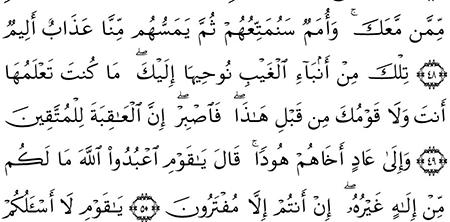 مِّمَّن مَّعَكَ ۚ وَأُمَمٌ سَنُمَتِّعُهُمْ ثُمَّ يَمَسُّهُم مِّنَّا عَذَابٌ أَلِيمٌ
﴿٤٨﴾ تِلْكَ مِنْ أَنۢبَآءِ ٱلْغَيْبِ نُوحِيهَآ إِلَيْكَ ۖ مَا كُنتَ تَعْلَمُهَآ
أَنتَ وَلَا قَوْمُكَ مِن قَبْلِ هَـٰذَا ۖ فَٱصْبِرْ ۖ إِنَّ ٱلْعَـٰقِبَةَ لِلْمُتَّقِينَ
﴿٤٩﴾ وَإِلَىٰ عَادٍ أَخَاهُمْ هُودًا ۚ قَالَ يَـٰقَوْمِ ٱعْبُدُوا۟ ٱللَّهَ مَا لَكُم
مِّنْ إِلَـٰهٍ غَيْرُهُۥٓ ۖ إِنْ أَنتُمْ إِلَّا مُفْتَرُونَ ﴿٥٠﴾ يَـٰقَوْمِ لَآ أَسْـَٔلُكُمْ